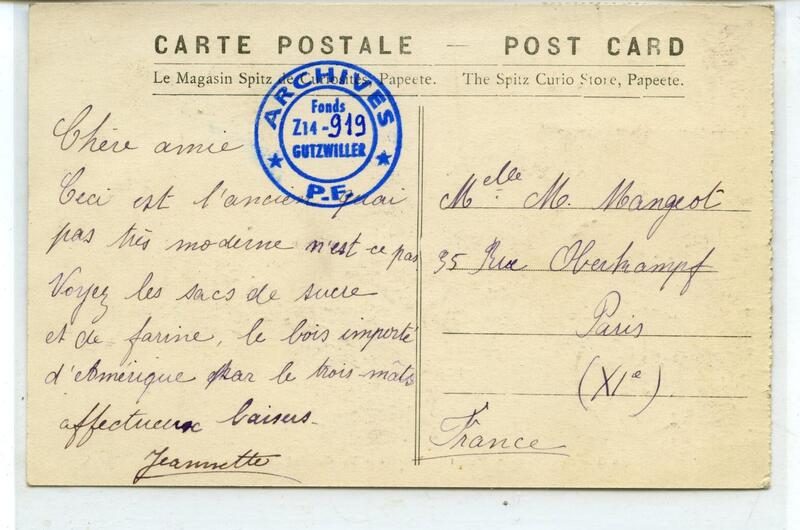 CARTE POSTALE — POST CARD
Le Magasin Spitz de Curiosités, Papeete. The Spitz Curio Store, Papeete.
ARCHIVES
Fonds
Z14-919
GUTZWILLER
P.F.
Chère amie
Ceci est l'ancien quai
pas très moderne n'est ce pas
Voyez les sacs de sucre
et de farine, le bois importé
d'Amérique par le trois-mâts
affectueux baisers.
Jeannette
Melle M. Mangeot
35 Rue Oberkampf
Paris
(XIe).
France